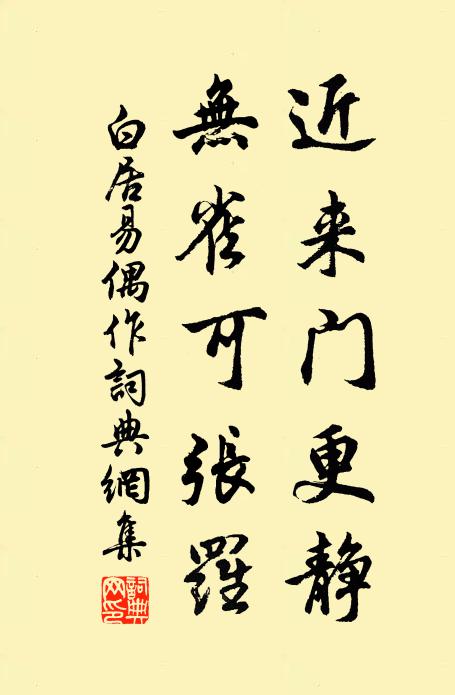 近来门更静
無雀可張羅
白居易偶作詞典網集
詞典网印